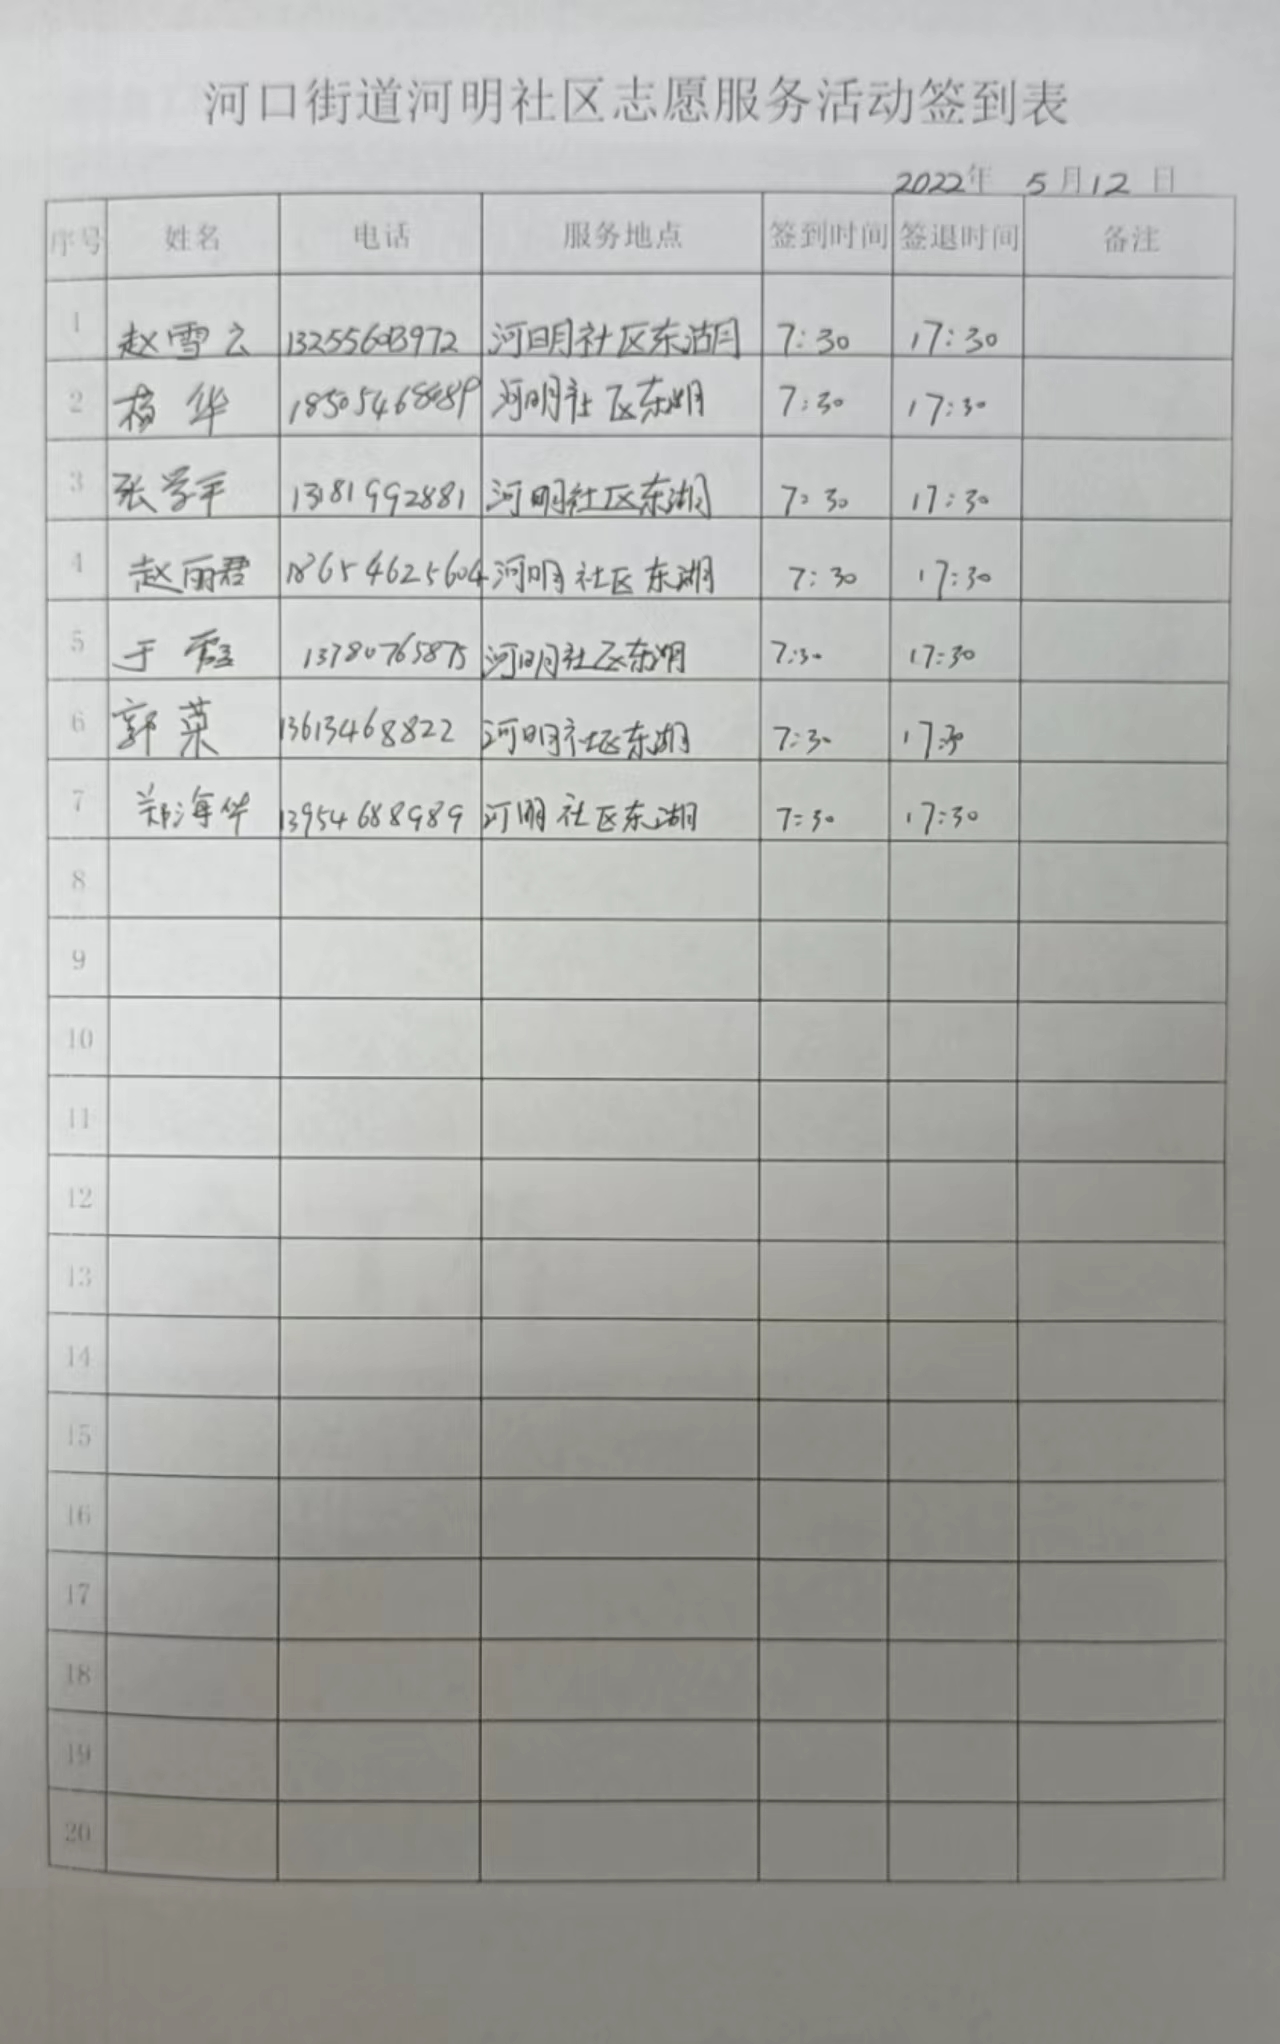 河口街道河明社区志愿服务活动签到表
2022年 5月12日
序号 姓名 电话 服务地点 签到时间 签退时间 备注
1 赵雪云 河明社区东湖 7:30 17:30
2 杨华 18505468689 河明社区东湖 7:30 17:30
3 张学平 13181992881 河明社区东湖 7:30 17:30
4 赵丽君 18654625604 河明社区东湖 7:30 17:30
5 于 13780765875 河明社区东湖 7:30 17:30
6 郭菜 13613468822 河明社区东湖 7:30 17:30
7 郑海华 13954688989 河明社区东湖 7:30 17:30
8
9
10
11
12
13
14
15
16
17
18
19
20